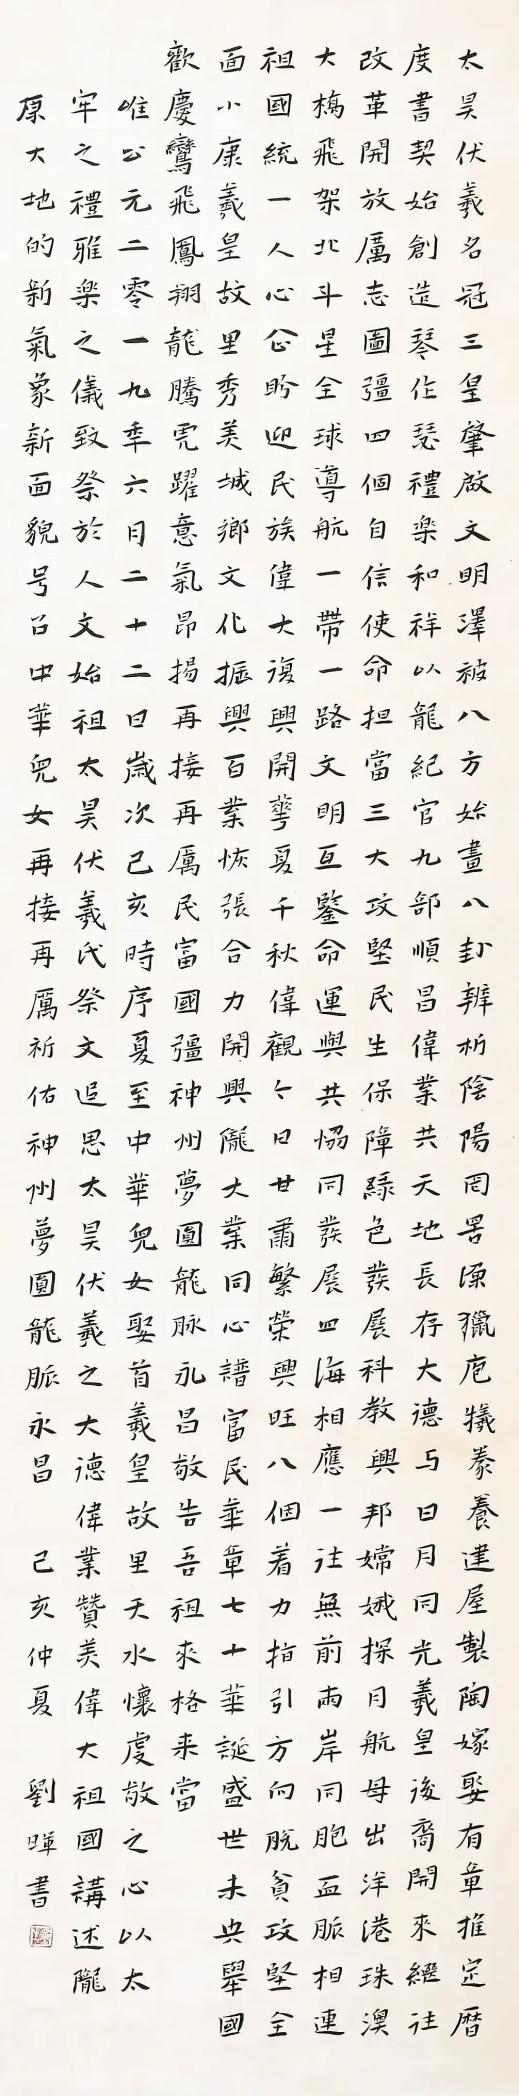 太昊伏羲名冠三皇肇啟文明澤被八方始畫八卦辨析陰陽罔罟漁獵庖犧豢養建屋製陶嫁娶有章推定曆
度書契始創造琴作瑟禮樂和祥以龍紀官九部順昌偉業共天地長存大德与日月同光羲皇後裔開來繼往
改革開放厲志圖彊四個自信使命担當三大攻堅民生保障綠色發展科教興邦嫦娥探月航母出洋港珠澳
大橋飛架北斗星全球導航一帶一路文明互鑒命運與共協同發展四海相應一往無前兩岸同胞血脈相連
祖國統一人心企盼迎民族偉大復興開華夏千秋偉觀今日甘肅繁榮興旺八個着力指引方向脫貧攻堅全
面小康羲皇故里秀美城鄉文化振興百業恢張合力開興隴大業同心譜富民華章七十華誕盛世未央舉國
歡慶鸞飛鳳翔龍騰虎躍意氣昂揚再接再厲民富國彊神州夢圓龍脉永昌敬告吾祖來格来當
唯公元二零一九年六月二十二日歲次己亥時序夏至中華兒女娶首羲皇故里天水懷虔敬之心以太
牢之禮雅樂之儀致祭於人文始祖太昊伏羲氏祭文追思太昊伏羲之大德偉業贊美偉大祖國講述隴
原大地的新氣象新面貌号召中華兒女再接再厲祈佑神州夢圓龍脈永昌 己亥仲夏 劉暉書